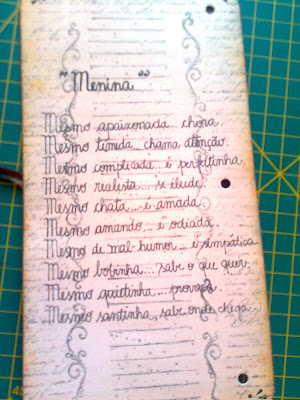 "Menina"
Mesmo apaixonada... chora.
Mesmo timida... chama atenção.
Mesmo complicada... é perfeitinha.
Mesmo realista... se ilude.
Mesmo chata... é amada.
Mesmo amando... é odiada.
Mesmo de mal-humor... é simpática
Mesmo bobinha... sabe o que quer.
Mesmo quietinha... provoca.
Mesmo santinha, sabe onde chega.